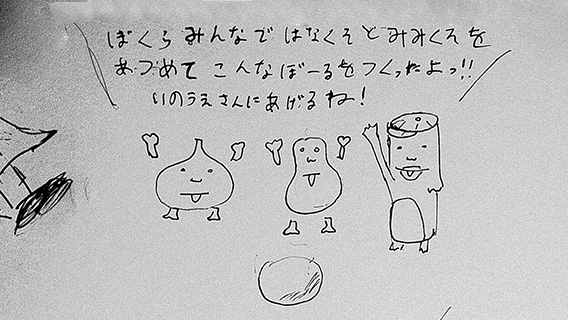 ぼくら みんなで はなくそ と みみくそを
あづめて こんなぼーるをつくったよっ!!
いのうえさんにあげるね!